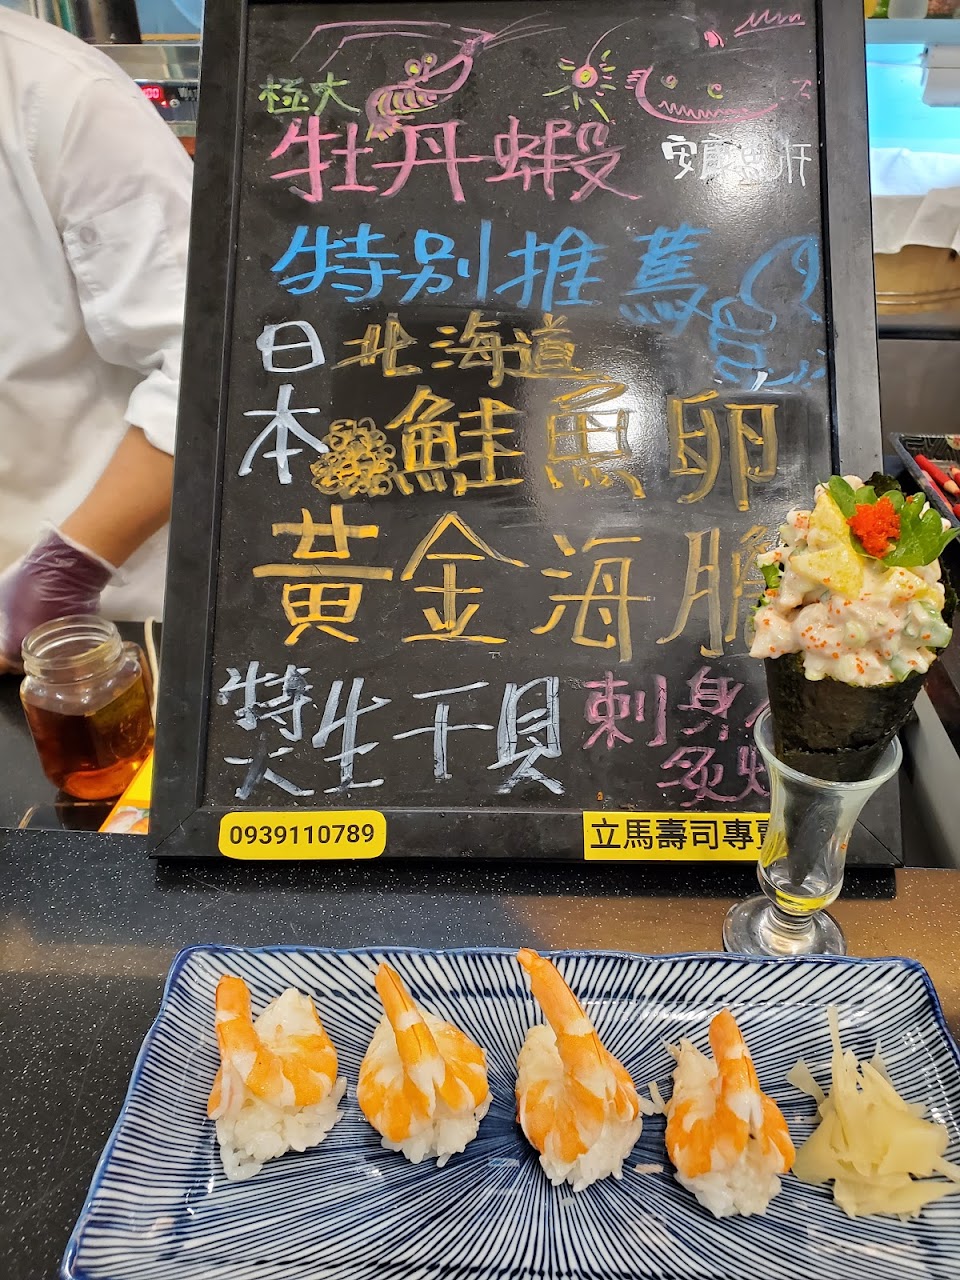 極大
牡丹蝦 安康魚肝
特別推薦
日本 北海道
鮭魚卵
黃金海膽
特大 生干貝 刺身
炙燒
0939110789
立馬壽司專賣